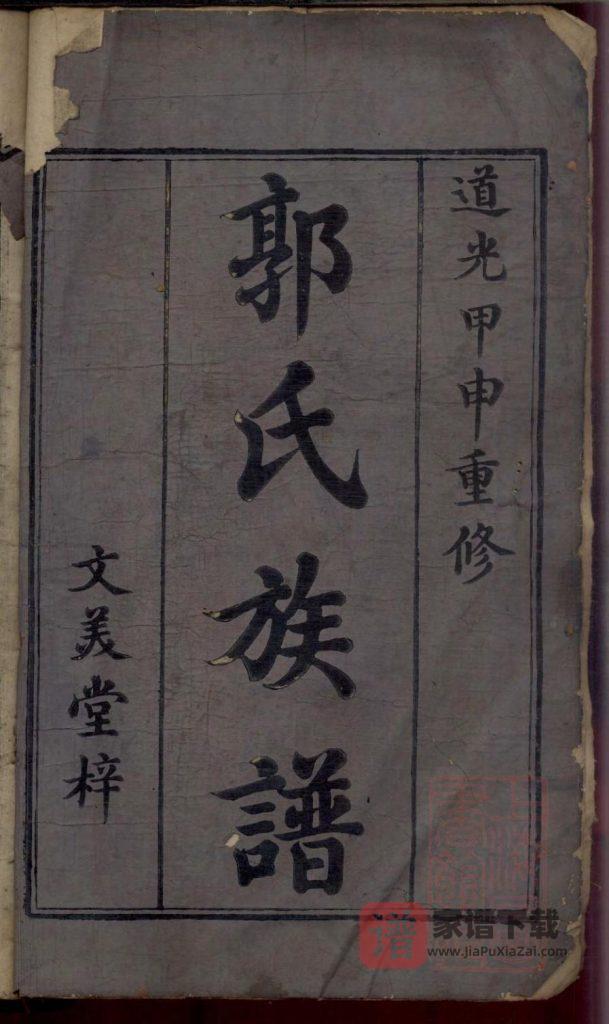 道光甲申重修
郭氏族譜
文美堂梓
谱
家谱下载
www.JiaPuXiaZai.com